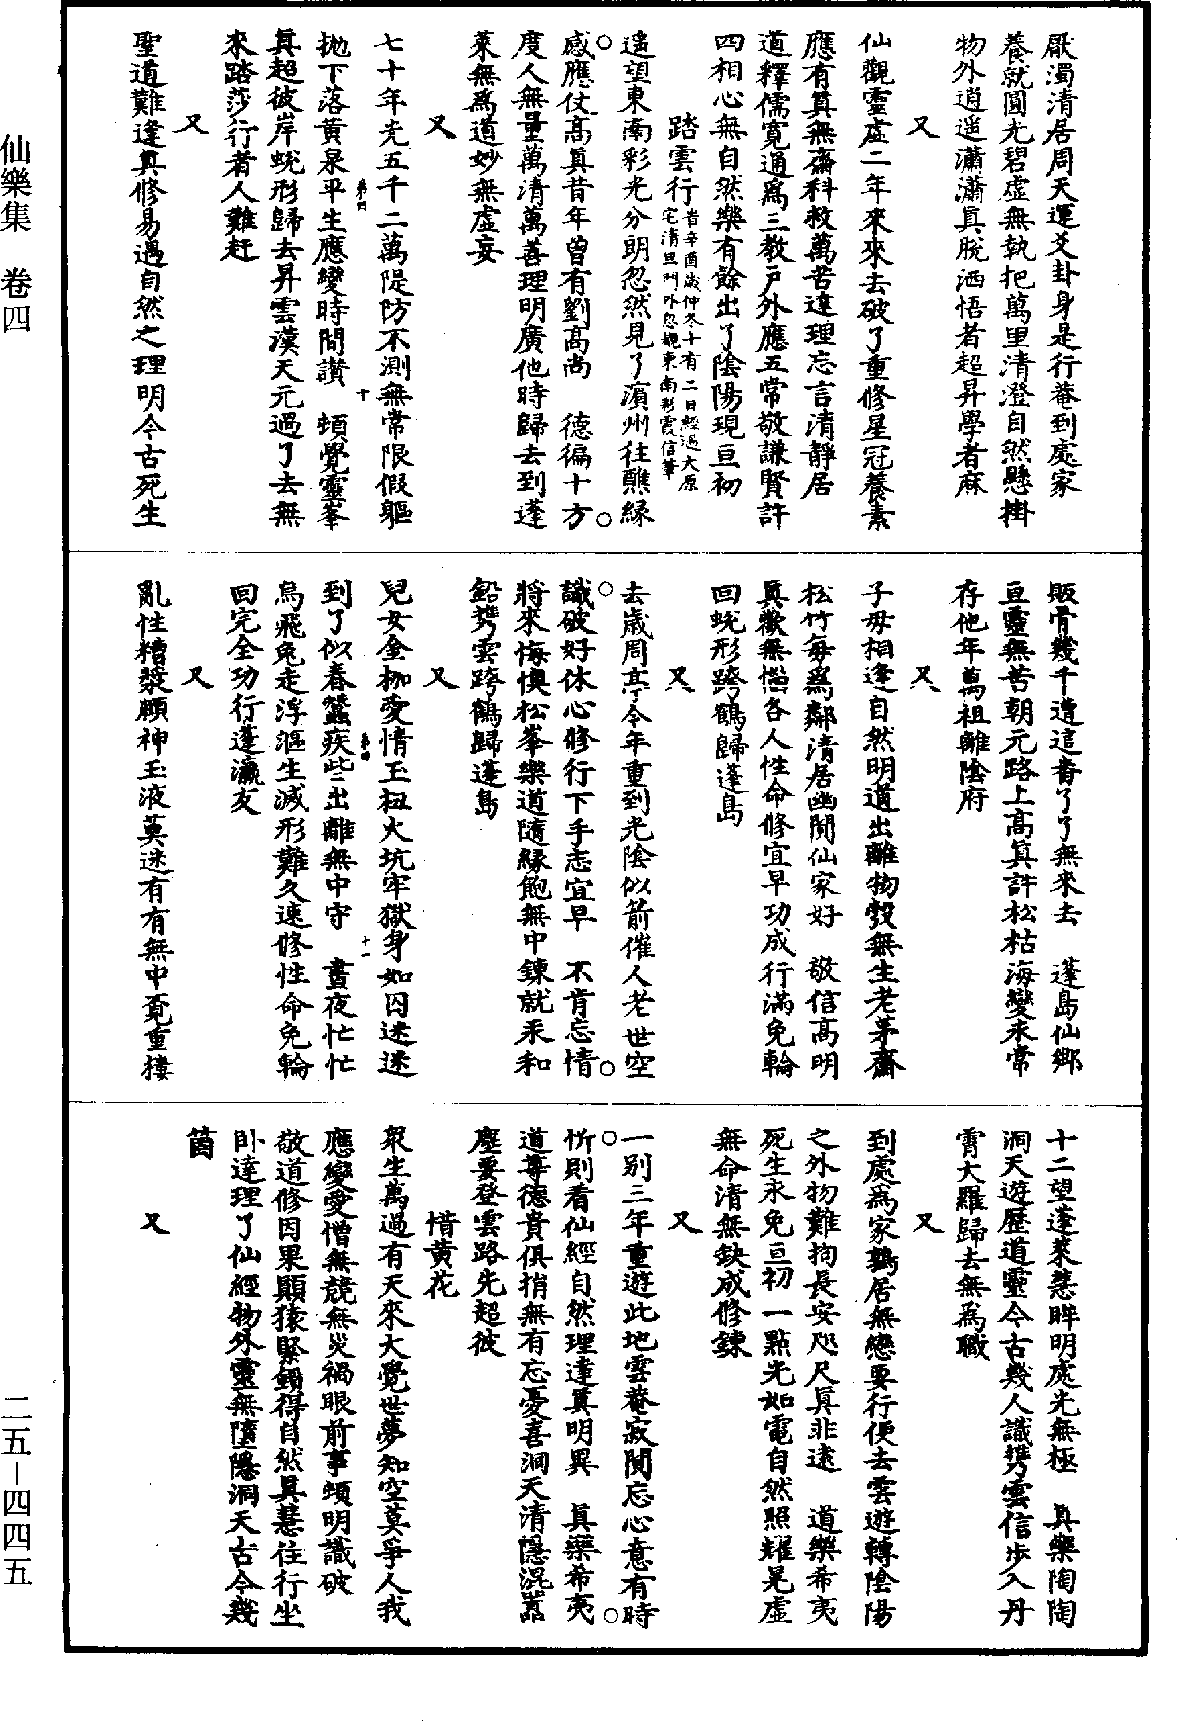 厭濁清居周天運爻卦身是行菴到處家
養就圓光碧虛無執把萬里清澄自然懸掛
物外逍遥瀟瀟真脫洒悟者超昇學者麻
又
仙觀靈虛二年來來去破了重修星冠養素
應有算無齋科救萬苦達理忘言清靜居
道釋儒寬通爲三教戶外應五常敬謙賢許
四相心無自然樂有餘出了陰陽現亘初
踏雲行
昔辛酉歲仲冬十有二日經過大原
宅清旦門外忽觀東南彩霞信筆
遥望東南彩光分明忽然見了濱州往醮緣
感應仗高真昔年曾有劉高尚　德徧十方
度人無量萬清萬善理明廣他時歸去到蓬
萊無爲道妙無虛妄
又
七十年光五千二萬隄防不測無常限假軀
拋下落黃泉平生應變時間讚　頓覺靈峯
真超彼岸蛻形歸去昇雲漢天元過了去無
來踏莎行者人難赶
又
聖道難逢真修易遇自然之理明今古死生
販骨幾千遭這畨了了無來去　蓬島仙鄉
亘靈無苦朝元路上高真許松枯海變永常
存他年萬祖離陰府
又
子母相逢自然明道出離物殼無生老茅齋
松竹每爲鄰清居幽閴仙家好　敬信高明
真歡無惱各人性命修宜早功成行滿免輪
回蛻形跨鶴歸蓬島
又
去歲周亭今年重到光陰似箭催人老世空
識破好休心修行下手志宜早　不肯忘情
將來悔懊松峯樂道隨緣飽無中鍊就汞和
鉛攜雲跨鶴歸蓬島
又
兒女金枷愛情玉杻火坑牢獄身如囚迷迷
到了似春蠶疾些出離無中守　晝夜忙忙
烏飛兔走浮漚生滅形難久速修性命免輪
回完全功行蓬瀛友
又
亂性糟漿頤神玉液莫迷有有無中覓重樓
十二望蓬萊慧眸明處光無極　真樂陶陶
洞天遊歷道靈今古幾人識攜雲信步入丹
霄大羅歸去無爲職
又
到處爲家鶉居無戀要行便去雲遊轉陰陽
之外物難拘長安咫尺真非遠　道樂希夷
死生永免亘初一點光如電自然照耀晃虛
無命清無缺成修鍊
又
一別三年重遊此地雲菴寂閴忘心意有時
忻則看仙經自然理達真明異　真樂希夷
道尊德貴俱捎無有忘憂喜洞天清隱混囂
塵要登雲路先超彼
惜黃花
衆生萬過有天來大覺世夢知空莫爭人我
應變愛憎無競無災禍眼前事頓明識破
敬道修因果顯猿緊鎖得自然真慧住行坐
臥達理了仙經物外靈無墮隱洞天古今幾
箇
又
仙樂集　卷四
二五－四四五